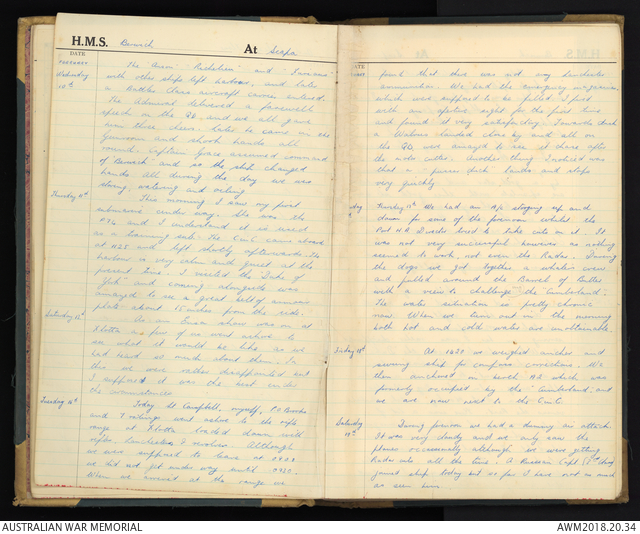 H.M.S. Berwick At Scapa
DATE
FEBRUARY
Wednesday
10th
The and
with other ships left harbour, and later
a Battler Class aircraft carrier entered.
The Admiral delivered a farewell
speech on the QD, and we all gave
him three cheers. Later he came in the
Gunroom and shook hands all
round. Captain Grace assumed command
of Berwick and so the ship changed
hands. All during the day we were
storing, watering and oiling.
Thursday 11th
This morning I saw my first
submarine under way. She was the
P.76 and I understand it is used
as a training sub. The CinC came aboard
at 1425 and left shortly afterwards. The
harbour is very calm and quiet at the
present time. I visited the Duke of
York and coming alongside was
amazed to see a great belt of armour
plate about 15 inches from the side.
Saturday 13th
An Ensa show was on at
Flotta so a few of us went ashore to
see what it would be like as we
had heard so much about them. In
this we were rather disappointed but
I suppose it was the best under
the circumstances.
Tuesday 16th
Today Lt. Campbell, myself, P.O. Brooks
and 7 ratings went ashore to the rifle
range at Flotta loaded down with
rifles, lanchesters & revolvers. Although
we were supposed to leave at 0900
we did not get under way until 0930.
When we arrived at the range we
H.M.S.
DATE
found that there was not any lanchester
ammunition. We had the emergency magazines
which were supposed to be filled. I fired
with an aperture sight for the first time
and found it very satisfactory. Towards dusk
a Walrus landed close by and all on
the QD were amazed to see it chase after
the motor cutter. Another thing I noticed was
that a dusk lands and stops
very quickly.
Thursday 18th We had an A/C stooging up and
down for some of the forenoon whilst the
Port H.A. Director tried to take cuts on it. It
was not very successful however as nothing
seemed to work, not even the Radar. During
the dogs we got together a whaler's crew
and pulled around the Barrel of Butter
with a view to challenge the "Cumberland".
The water situation is pretty chronic
now. When we turn out in the morning
both hot and cold water are unobtainable.
At 1430 we weighed anchor and
swung ship for compass corrections. We
then anchored in berth A2 which was
formerly occupied by the "Cumberland", and
we are now next to the CinC.
Saturday
During forenoon we had a dummy air attack.
It was very cloudy and we only saw the
planes occasionally although we were getting
Radar cuts all the time. A Russian Capt.
joined ship today but so far I have not as much
as seen him.
AUSTRALIAN WAR MEMORIAL
AWM2018.20.34